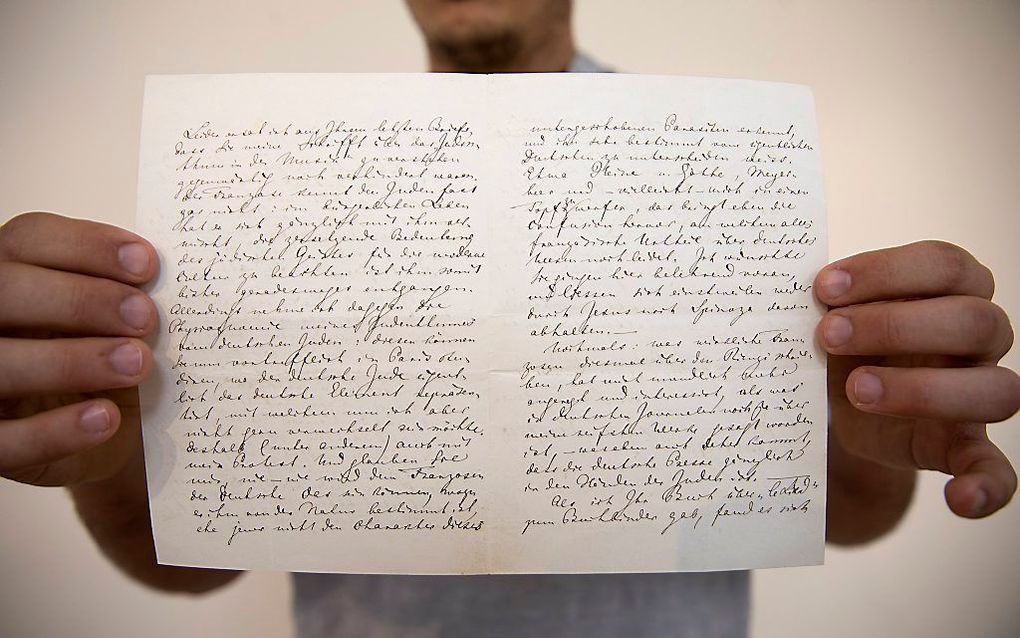 Leider ersah ich aus Ihrem letzten Briefe,
dass Sie meine Schrift über das Juden-
thum in der Musik zu verstehen
gegenwärtig noch verhindert waren.
Der Franzose kennt den Juden fast
gar nicht: im bürgerlichen Leben
hat er sich gänzlich mit ihm ver-
mischt, die zersetzende Bedeutung
des jüdischen Geistes für das moderne
Leben zu beachten ist ihm somit
bisher geradesweges entgangen.
Allerdings nehme ich dagegen die
Physiognomie meines Judenthumes
vom deutschen Juden: diesen können
Sie nun vortrefflich in Paris stu-
diren, wo der deutsche Jude eigent-
lich das deutsche Element repräsen-
tirt, mit welchem nun ich aber
nicht gern verwechselt sein möchte,
deshalb (unter anderen) auch mit
mein Protest. Und glauben Sie
mir, nie – nie wird dem Franzosen
der Deutsche das sein können, wozu
er ihm von der Natur bestimmt ist,
ehe jener nicht den Charakter dieses
untergeschobenen Parasiten erkennt,
und ihn sehr bestimmt vom eigentlichen
Deutschen zu unterscheiden weiss.
Etwa Heine u. Göthe, Meyer-
beer und – vielleicht – mich in einen
Topf zu werfen, das bringt eben die
Confusion hervor, an welchem alles
französische Urtheil über deutsches
Wesen noch leidet. Ich wünschte
Sie gingen hier belehrend voran,
und liessen sich einstweilen weder
durch Jesus noch Spinoza davon
abhalten. —
Nochmals: was wirkliche Fran-
zosen diesmal über den Rienzi schrie-
ben, hat mich unendlich mehr
angeregt und interessirt, als was
in deutschen Journalen noch je über
meine reifsten Werke gesagt worden
ist, – was eben auch daher kommt,
dass die deutsche Presse gänzlich
in den Händen der Juden ist. —
Als ich Ihr Buch über
zum Buchbinder gab, fand es sich